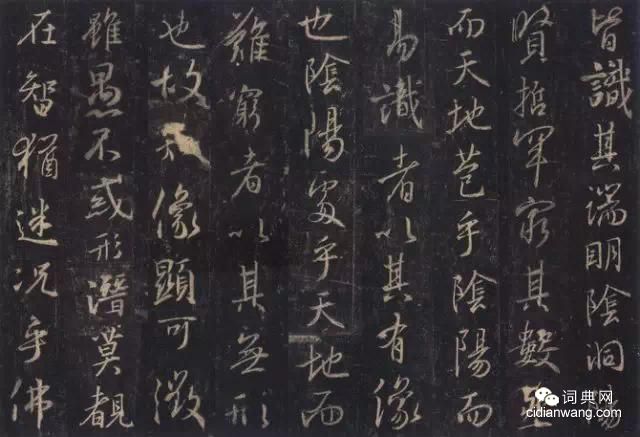 皆識其端明陰洞陽
賢哲罕窮其數然
而天地苞乎陰陽而
易識者以其有像
也陰陽處乎天地而
難窮者以其無形
也故知像顯可徵
雖愚不惑形潛莫覩
在智猶迷況乎佛
词典网
cidianwang.com